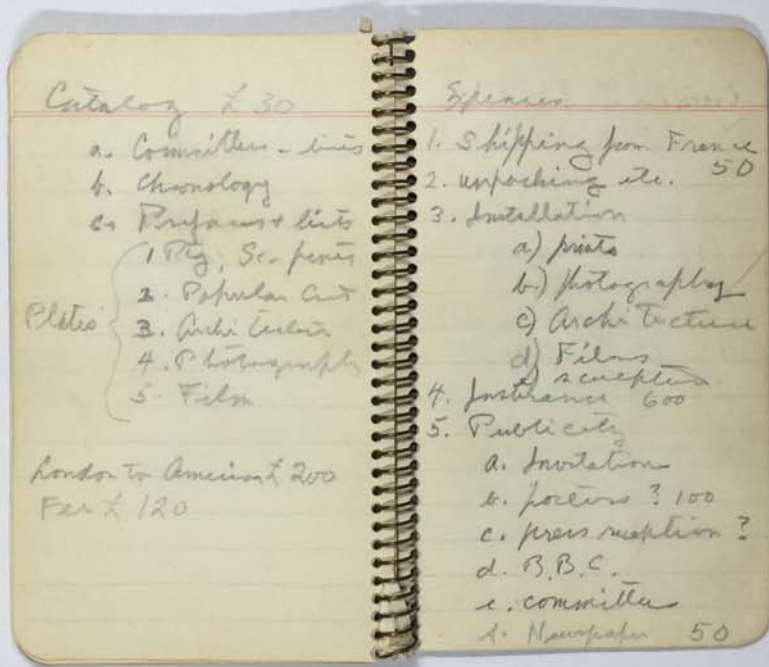 Catalog £30
a. Committees - lists
b. Chronology
c. Prefaces + lists
Plates
1 Ptg, Sc. prints
2. Popular Art
3. Architecture
4. Photography
5. Film
London to America £ 200
Fee £ 120
Expenses
1. Shipping from France
50
2. unpacking etc.
3. Installation
a) prints
b.) photography
c) Architecture
d) Films
e) sculpture
4. Insurance 600
5. Publicity
a. Invitation
b. posters ? 100
c. press reception ?
d. B.B.C.
e. committees
f. Newspaper 50